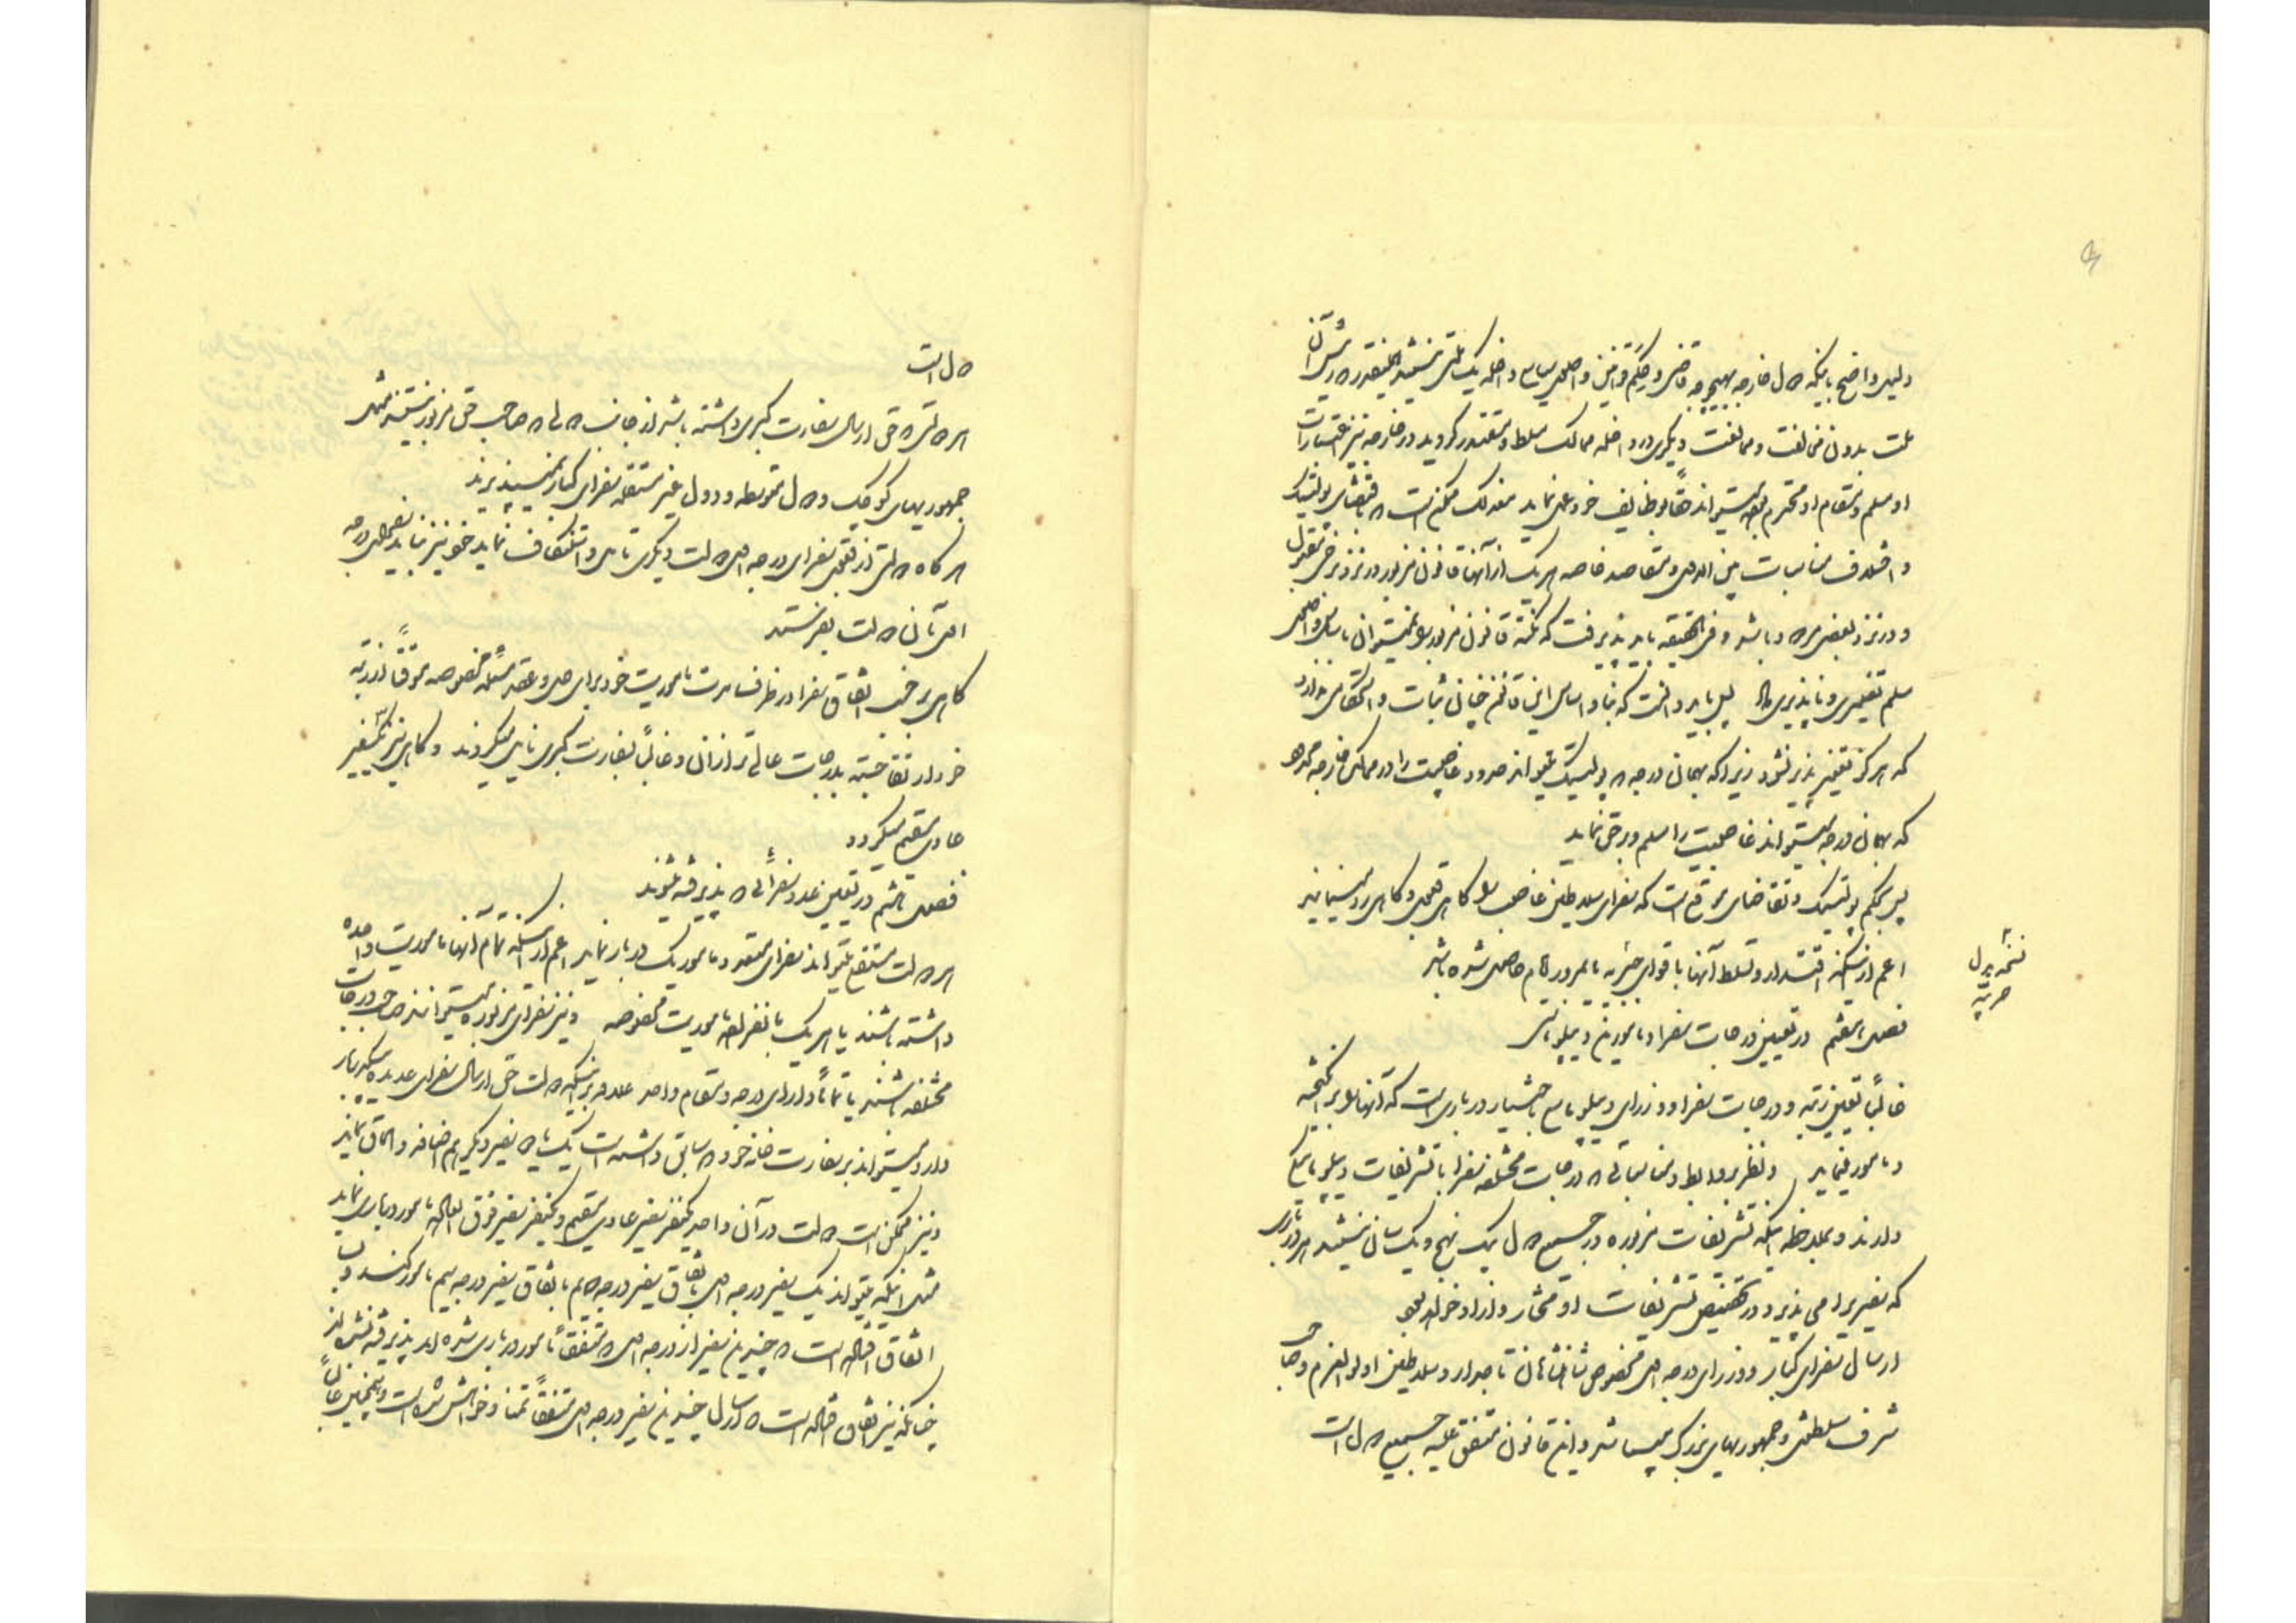 دلیل واضح باینکه دول خارجه بهیچوجه قاضی و حکم و امین و اصلاح سیاسی داخله یک ملتی نیستند همینقدر که رئیس آن
ملت بدون مخالفت و ممانعت دیگری در داخله ممالک مسلط و مقتدر گردید در خارجه نیز اعتبارات
او مسلم و مقام او محترم بوده میتواند حقاً بوظایف خود عمل نماید معذلک ممکن است که باقتضای پولتیک
و اختلاف مناسبات بین الدول و مقاصد خاصه هر یک از آنها قانون مزبور در نزد برخی مقبول
و در نزد بعضی مردود باشد و فی الحقیقه باید پذیرفت که نکته قانون مزبور را نمیتوان باساس و اصلی
مسلم تغییر و ناپذیری داد بلی باید دانست که بنا و اساس این قانون چنان ثبات و استحکامی ندارد
که هرگز تغییر پذیر نشود زیرا که بهمان درجه که پولتیک میتواند مردود غاصبیت را در ممالک خارجه
که بهمان درجه میتواند غاصبیت را مسلم و برحق نماید
پس بحکم پولتیک و تقاضای موقع است که سفرای سلاطین غاصب را گاهی قبول و گاهی رد مینمایند
اعم از اینکه اقتدار و تسلط آنها با قوای جبریه یا بمرور ایام حاصل شده باشد
نسخه بدل
حربیه
فصل هفتم در تعیین درجات سفرا و مامورین دیپلوماسی
غالباً تعیین رتبه و درجات سفرا و وزرای دیپلوماسی باختیار درباری است که آنها را برانگیخته
و مامور مینماید و نظر بروابط و مناسباتی که درجات مختلفه سفرا با تشریفات دیپلوماسی
دارند و بملاحظه اینکه تشریفات مزبوره در جمیع دول یک نهج و یکسان نیستند هر درباری
که سفیر را می پذیرد در تخصیص تشریفات او مختار و آزاد خواهد بود
ارسال سفرای کبار و وزرای درجه اول مخصوص شاهنشاهان تاجدار و سلاطین اولوالعزم و صاحب
شرف سلطنتی و جمهوریهای بزرگ میباشد و این قانون متفق علیه جمیع دول است
دول است
هر دولتی که حق ارسال سفارت کبری داشته باشد از جانب دولی که صاحب حق مزبور نیستند مثل
جمهوریهای کوچک و دول متوسطه و دول غیر مستقله سفرای کبار نمیپذیرند
هرگاه دولتی از قبول سفرای درجه اول دولت دیگری تابی و استنکاف نماید خود نیز نباید سفرای درجه
اول بآن دولت بفرستد
گاهی بر حسب اتفاق سفرا در ظرف مدت ماموریت خود برای حل و عقد مسئله مخصوصه موقتاً از رتبه
خود ارتقا جسته بدرجات عالی تر از آن و غالباً بسفارت کبری نایل میگردند و گاهی نیز سفیر
عادی مقیم میگردد
فصل هشتم در تعیین عدد سفرائی که پذیرفته میشوند
هر دولت مستقلی میتواند سفرای متعدد مامور یک دربار نماید اعم از اینکه تمام آنها ماموریت واحده
داشته باشند یا هر یک بانفراده ماموریت مخصوصه و نیز سفرای مزبوره میتوانند صاحب درجات
مختلفه باشند یا تماماً دارای درجه و مقام واحد علاوه بر اینکه دولت حق ارسال سفرای عدیده بیک دربار
دارد میتواند بر سفارت خانه خود که سابق داشته است یک یا دو سفیر دیگر هم اضافه و الحاق نماید
و نیز ممکن است دولت در آن واحد یکنفر سفیر عادی مقیم و یکنفر سفیر فوق العاده مامور درباری نماید
مثل اینکه میتواند یک سفیر درجه اول باتفاق سفیر درجه دوم یا باتفاق سفیر درجه سیم مامور کند و بسا
اتفاق افتاده است که چندین سفیر از درجه اول متفقاً مامور درباری شده اند پذیرفته نشده اند
چنانکه نیز اتفاق افتاده است که ارسال چندین سفیر درجه اول متفقاً تمنا و خواهش شده است و همچنین غالباً